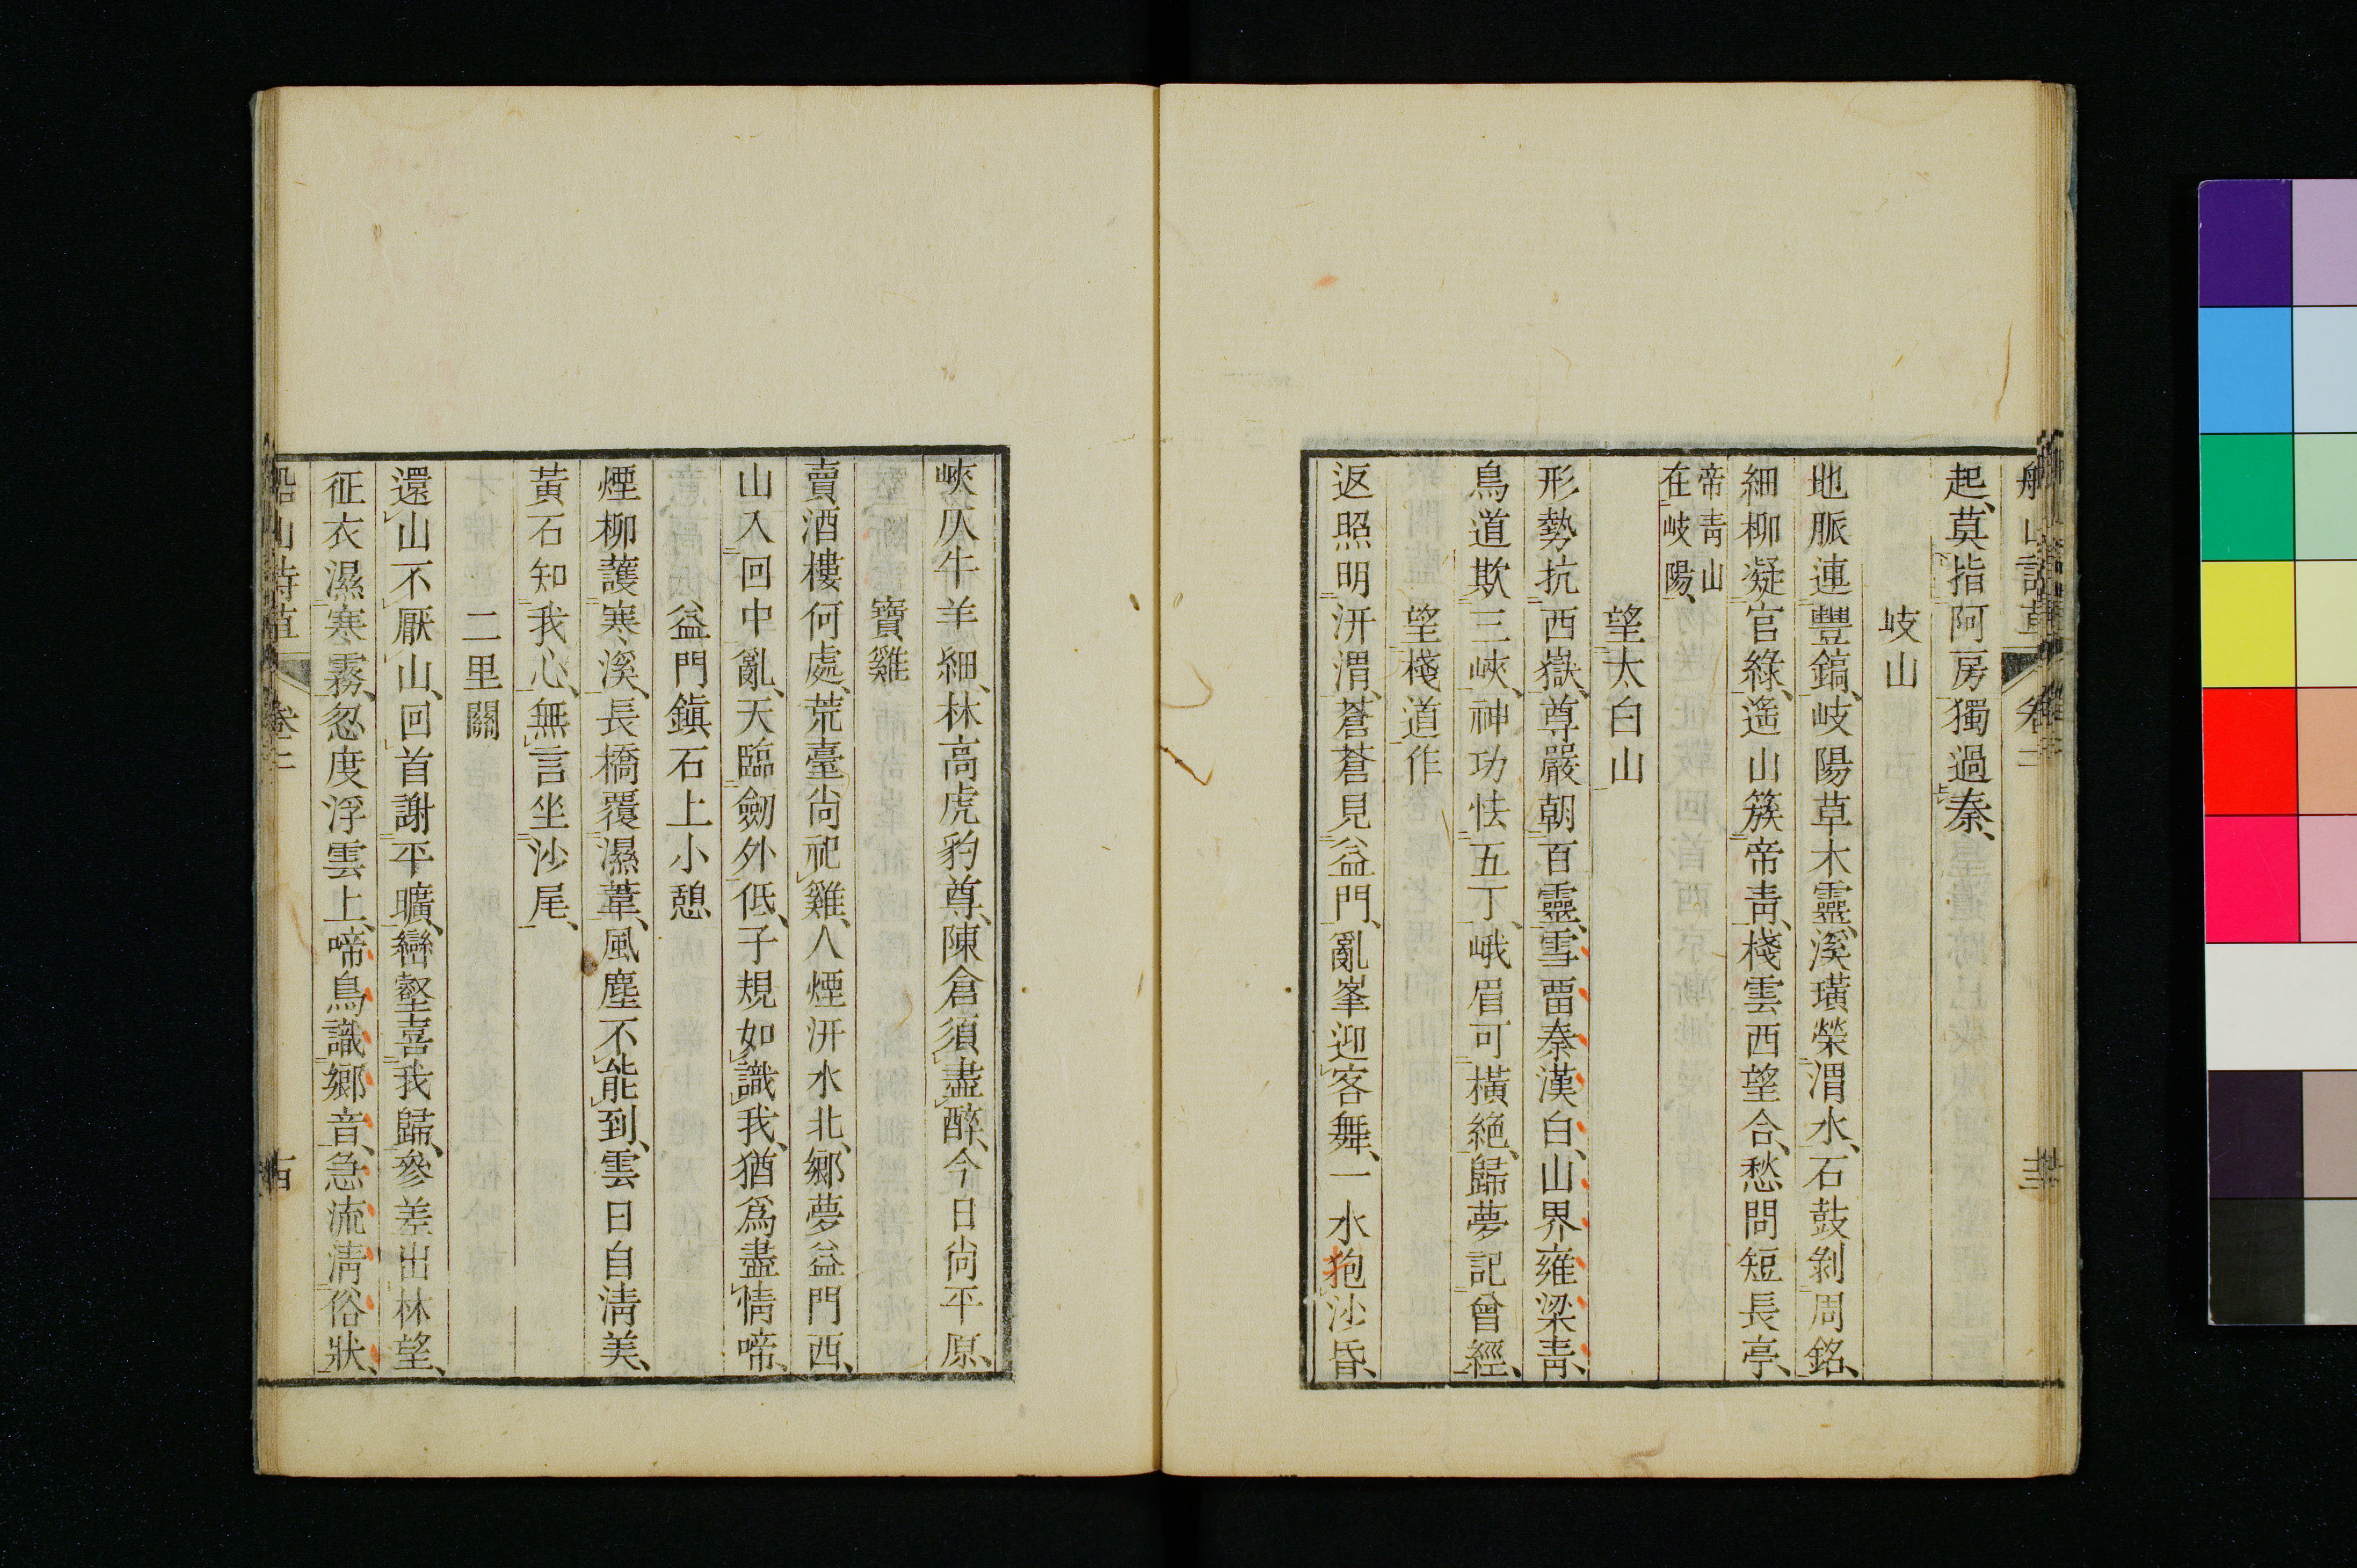 起、莫指阿房獨過秦、
岐山
地脈連豐鎬、岐陽草木靈、溪璜榮渭水、石鼓剝周銘、
細柳凝官綠、遙山簇帝青、棧雲西望合、愁問短長亭、
帝青山
在岐陽、
望太白山
形勢抗西嶽、尊嚴朝百靈、雪畱秦漢白、山界雍梁青、
鳥道欺三峽、神功怯五丁、峨眉可橫絶、歸夢記曾經、
望棧道作
返照明汧渭、蒼蒼見益門、亂峯迎客舞、一水抱沙昏、
峽仄牛羊細、林高虎豹尊、陳倉須盡醉、今日尙平原、
寶雞
賣酒樓何處、荒臺尙祀雞、人煙汧水北、鄉夢益門西、
山入回中亂、天臨劒外低、子規如識我、猶爲盡情啼、
益門鎭石上小憩
煙柳護寒溪、長橋覆濕葦、風塵不能到、雲日自淸美、
黃石知我心、無言坐沙尾、
二里關
還山不厭山、回首謝平曠、巒壑喜我歸、參差出林望、
征衣濕寒霧、忽度浮雲上、啼鳥識鄉音、急流淸俗狀、
船山詩草 卷二